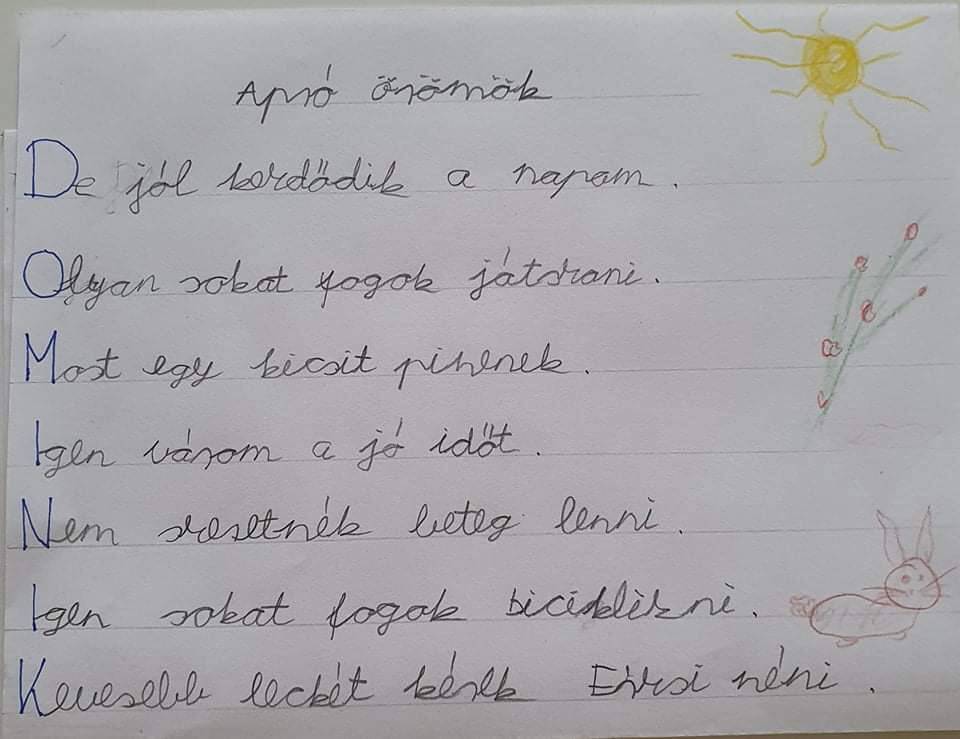 Apró örömök
De jól kezdődik a napom.
Olyan sokat fogok játszani.
Most egy kicsit pihenek.
Igen várom a jó időt.
Nem szeretnék beteg lenni.
Igen sokat fogok biciklizni.
Kevesebb leckét kérek Erzsi néni.